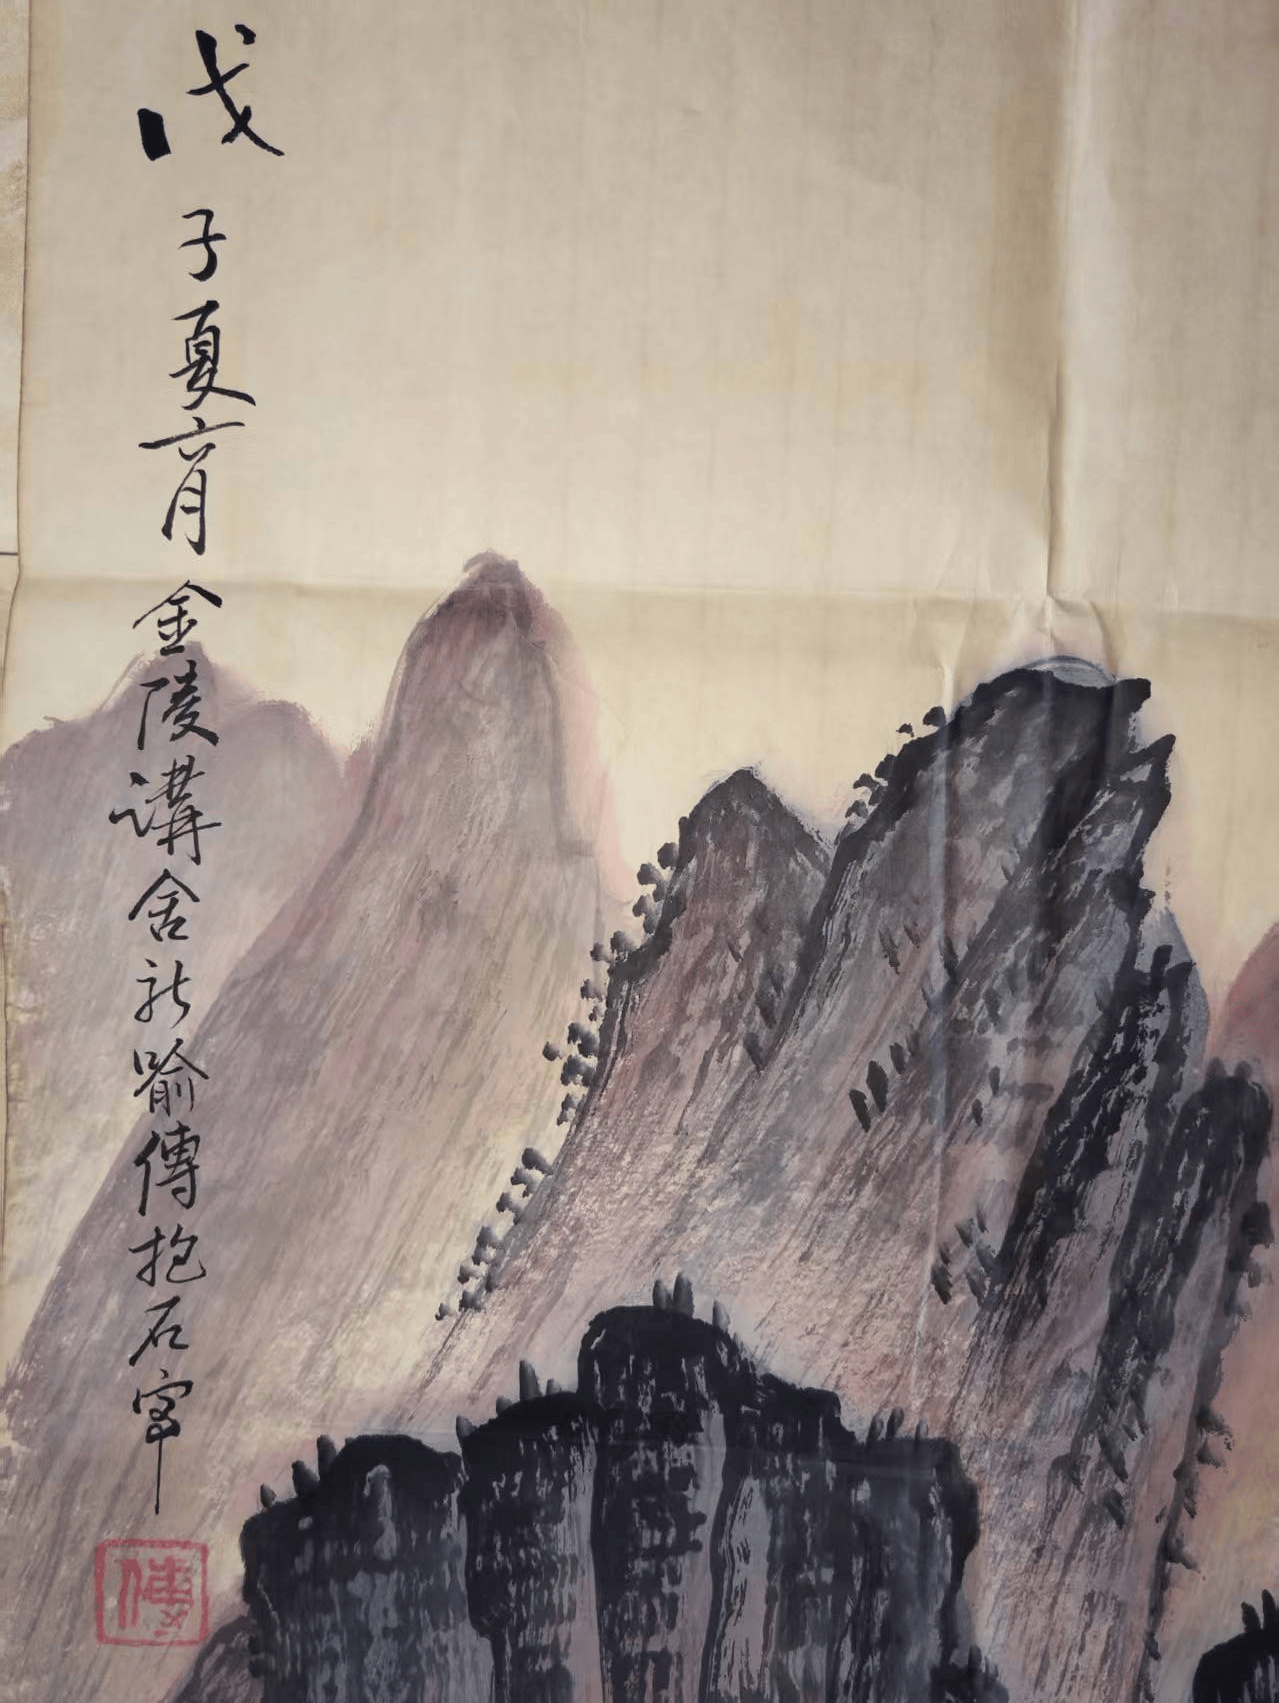 戊子夏六月金陵講舍新喻傅抱石寫
傅